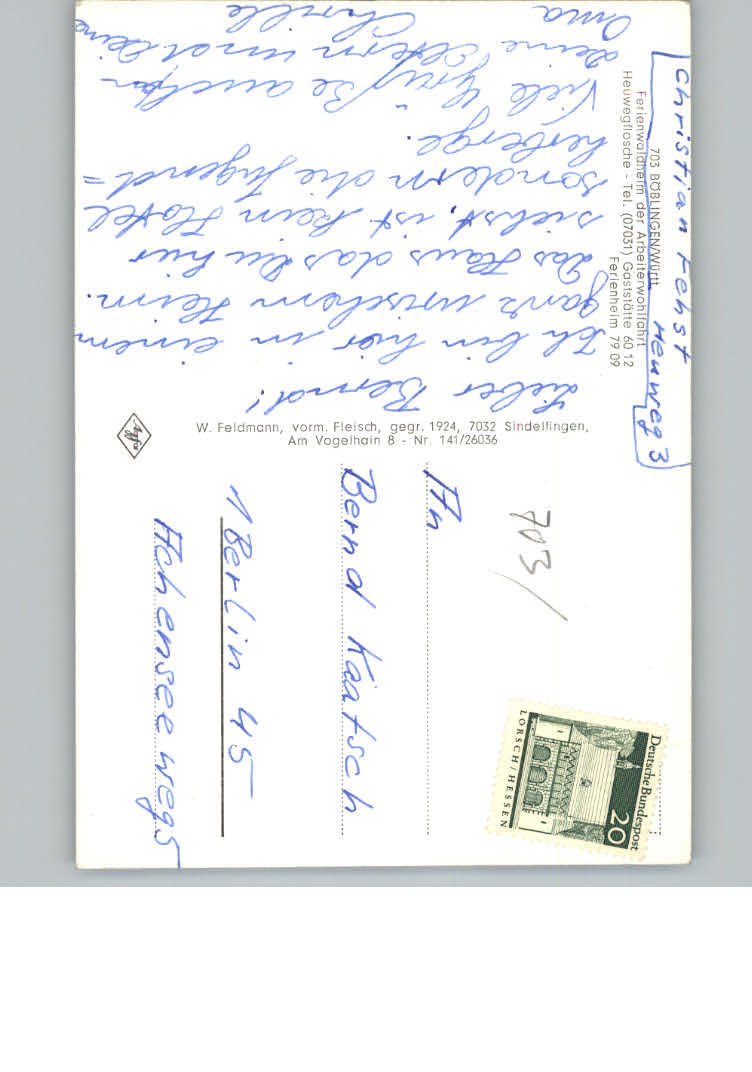 Christian Fehst
Heuweg 3
703 BÖBLINGEN/Württ.
Ferienwaldheim der Arbeiterwohlfahrt
Heuwegflosche - Tel. (07031) Gaststätte 60 12
Ferienheim 79 09
Lieber Bernd!
Ich bin hier in einem
ganz hier Heim.
Das Haus das du hier
siehst, ist kein Hotel
sondern die Jugend=
herberge.
Viele Grüße auch an
deine Eltern und deine
Oma
W. Feldmann, vorm. Fleisch, gegr. 1924, 7032 Sindelfingen,
Am Vogelhain 8 - Nr. 141/26036
Agfa
703/
Deutsche Bundespost
20
LORSCH/HESSEN
An
Bernd Kaatsch
1 Berlin 45
Hohenseeweg 5